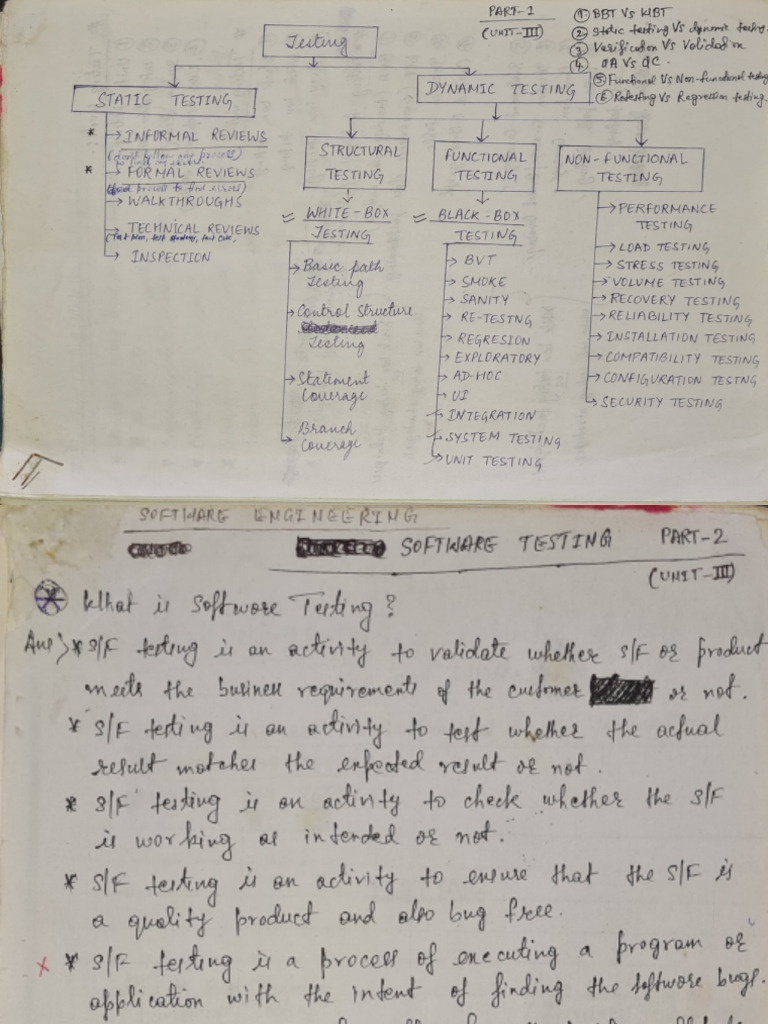 PART-1
(UNIT-III)
① BBT Vs WBT
② Static testing Vs dynamic testing.
③ Verification Vs Validation
④ QA Vs QC.
⑤ Functional Vs Non-functional testing
⑥ Retesting Vs Regression testing.
Testing
STATIC TESTING
DYNAMIC TESTING
* INFORMAL REVIEWS
(don't follow any process)
to find
* FORMAL REVIEWS
process to find errors)
WALKTHROUGHS
TECHNICAL REVIEWS
(Test Plan, test strategy, test case,
INSPECTION
STRUCTURAL
TESTING
= WHITE-BOX
TESTING
Basic path
Testing
Control Structure
Testing
Statement
Coverage
Branch
Coverage
FUNCTIONAL
TESTING
= BLACK-BOX
TESTING
BVT
SMOKE
SANITY
RE-TESTNG
REGRESION
EXPLORATORY
AD-HOC
UI
INTEGRATION
SYSTEM TESTING
UNIT TESTING
NON-FUNCTIONAL
TESTING
PERFORMANCE
TESTING
LOAD TESTING
STRESS TESTING
VOLUME TESTING
RECOVERY TESTING
RELIABILITY TESTING
INSTALLATION TESTING
COMPATIBILITY TESTING
CONFIGURATION TESTNG
SECURITY TESTING
SOFTWARE ENGINEERING
SOFTWARE TESTING PART-2
(UNIT-III)
* What is Software Testing?
Ans:> * S/F testing is an activity to validate whether S/F or product
meets the business requirements of the customer or not.
* S/F testing is an activity to test whether the actual
result matches the expected result or not.
* S/F testing is an activity to check whether the S/F
is working as intended or not.
* S/F testing is an activity to ensure that the S/F is
a quality product and also bug free.
x * S/F testing is a process of executing a program or
application with the intent of finding the software bugs.